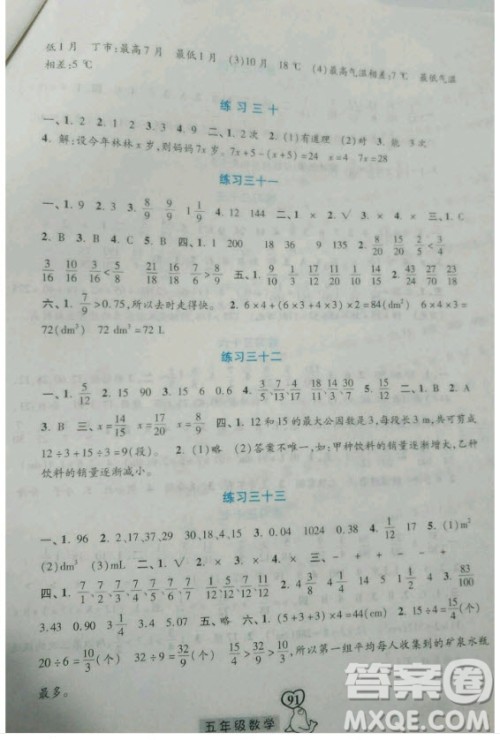 低1月 丁市:最高7月 最低1月 (3)10月 18℃ (4)最高气温相差:4℃ 最低气温
相差:5℃
练习三十
一、1.2 2.1 3.4 4.9 二、1.2次 2.(1)有道理 (2)对 3.能
4.解:设今年林林x岁,则妈妈7x岁。7x-(x+5)=24-5 x=4 7x=28
练习三十一
一、1.9 2.4 3. 8/9 1/9 4.12 144 二、1.× 2.√ 3.× 三、1.C
2.B 3.B 四、1.1 200 18 36 150 9/10 2. 8/20 2/5<3/5
3/16 10/16<5/8 15/9 8/9>7/9 五、1. 9/10 1/10 17/12 2. 4/20 43/24 23/70
六、1. 7/9>0.75,所以去时走得快。 2.6×4+(6×4+6×2)×2=84(dm²) 6×4×3=
72(dm³) 72 dm³=72 L
练习三十二
一、1. 5/12 2.15 90 3.2 4. 3/5、4/5、6/5、7/5、8/5、9/5 二、1.B 2.A
3.B 三、x=14/15 x=17/20 x=8/9 四、1.12和15的最大公因数是3,每段长3 m,共可剪成
12÷3+15÷3=9(段)。 2.(1)略 (2)(答案不唯一,如:甲种饮料的销量逐渐减小,乙种
饮料的销量逐渐减小。
练习三十三
一、1.96 2.2,17,29,37 3.0.04 1024 0.38 4. 1/2 5.(1)m²
(2)dm³ (3)mL 二、1.√ 2.× 3.× 4.× 三、- + - +
四、1. 7/1、7/2、7/3、7/4、7/5、7/6、7/7、7/8、7/9、7/10、7/11 2.4 1 4 3.2 4. 83/100
3.43 0.90 3 1/4 3.4 5.07 五、略 六、1.(5+3+3)×4=44(cm) 2.15÷4=15/4(个)
20÷6=10/3(个) 32÷9=32/9(个) 15/4>32/9>10/3,所以第一组平均每人收集到的矿泉水瓶
最多。
91
五年级数学
答案圈
MXQE.COM